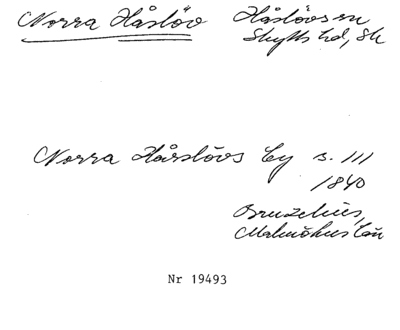 Norra Håslöv Håslövs sn
Skytts hd, Sk
Norra Hårslövs by s. 111
1840
Bruzelius,
Malmöhus län
Nr 19493